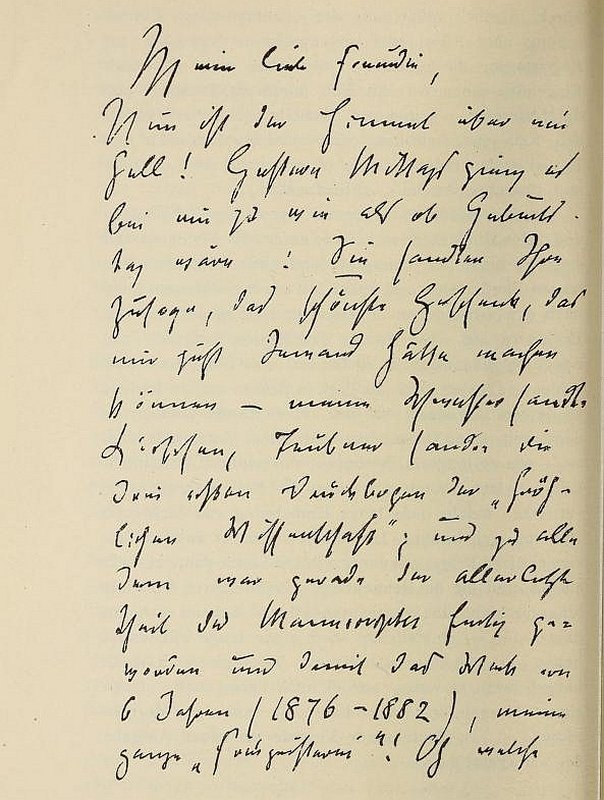 Meine liebe Freundin,
Nun ist der Himmel über mir
hell! Gestern Mittag gieng es
bei mir zu wie als ob Geburts-
tag wäre! Sie sandten Ihre
Zusage, das schönste Geschenk, das
mir jetzt Jemand hätte machen
können — meine Schwester sandte
Kirschen, Teubner sandte die
drei ersten Druckbogen der „fröh-
lichen Wissenschaft"; und zu alle
dem war gerade der allerletzte
Theil des Manuscriptes fertig ge-
worden und damit das Werk von
6 Jahren (1876-1882), meine
ganze „Freigeisterei"! Oh welche